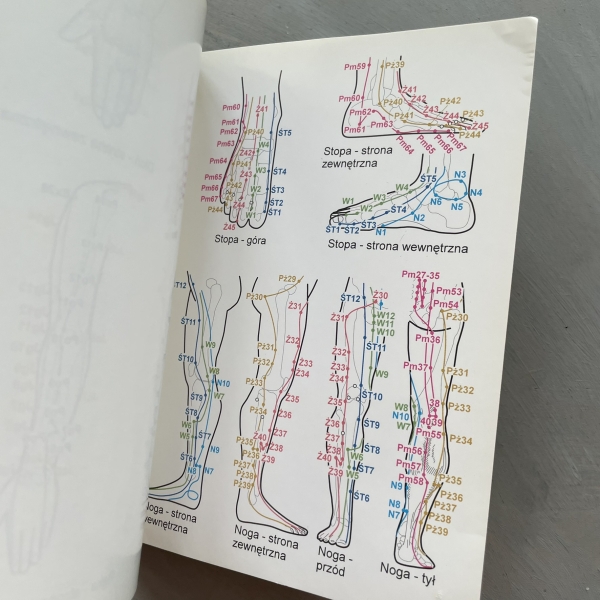 Pm60
Ż41
Pm61
Pm62
Pż40
ŚT5
Pm63
W4
Ż42
Pm64
Pż41
W3
Ż43
ŚT4
Pm65
Pż42
W2
ŚT3
Pm66
Pż43
Pm67
Ż44
ŚT2
Pż44
W1
ŚT1
Ż45
Stopa - góra
Pm59
Pż39
Ż41
Pm60
Pż40
Ż42
Pż42
Pm62
Ż43
Pż43
Pm63
Pż41
Ż44
Ż45
Pm61
Pż44
Pm64
Pm65
Pm66
Pm67
Stopa - strona
zewnętrzna
ŚT5
N3
W4
N4
W3
W2
N6
N5
W1
ŚT4
N2
ŚT1
ŚT2
ŚT3
N1
Stopa - strona wewnętrzna
ŚT12
ŚT11
W9
ŚT10
W8
N10
ŚT9
W7
ŚT8
W6
W5
ŚT7
N9
ŚT6
N8
N7
Noga - strona
wewnętrzna
Pż29
Pż30
Ż31
Ż32
Pż31
Pż32
Ż33
Ż34
Pż33
Ż35
Pż34
Ż36
Ż37
Ż40
Pż35
Ż38
Pż36
Ż39
Pż37
Pż38
Pż39
Noga - strona
zewnętrzna
ŚT12
Ż30
Ż31
W12
W11
W10
ŚT11
Ż32
Ż33
W9
Ż34
ŚT10
Ż35
ŚT9
Ż36
Ż37
ŚT8
Ż38
W6
Ż40
ŚT7
Ż39
W5
ŚT6
Noga -
przód
Pm27-35
Pm53
Pm54
Pż30
Pm36
Pm37
Pż31
Pż32
W8
38
Pż33
N10
W7
40
39
Pm55
Pż34
Pm56
Pm57
Pm58
Pż35
N9
Pż36
N8
Pż37
N7
Pż38
Pż39
Noga - tył